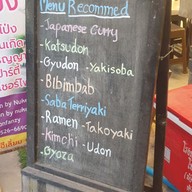 Menu Recommed
-Japanese Curry
-Katsudon
-Gyudon -Yakisoba
-Bibimbab
-Saba Terriyaki
-Ramen -Takoyaki
-Kimchi -Udon
-Gyoza